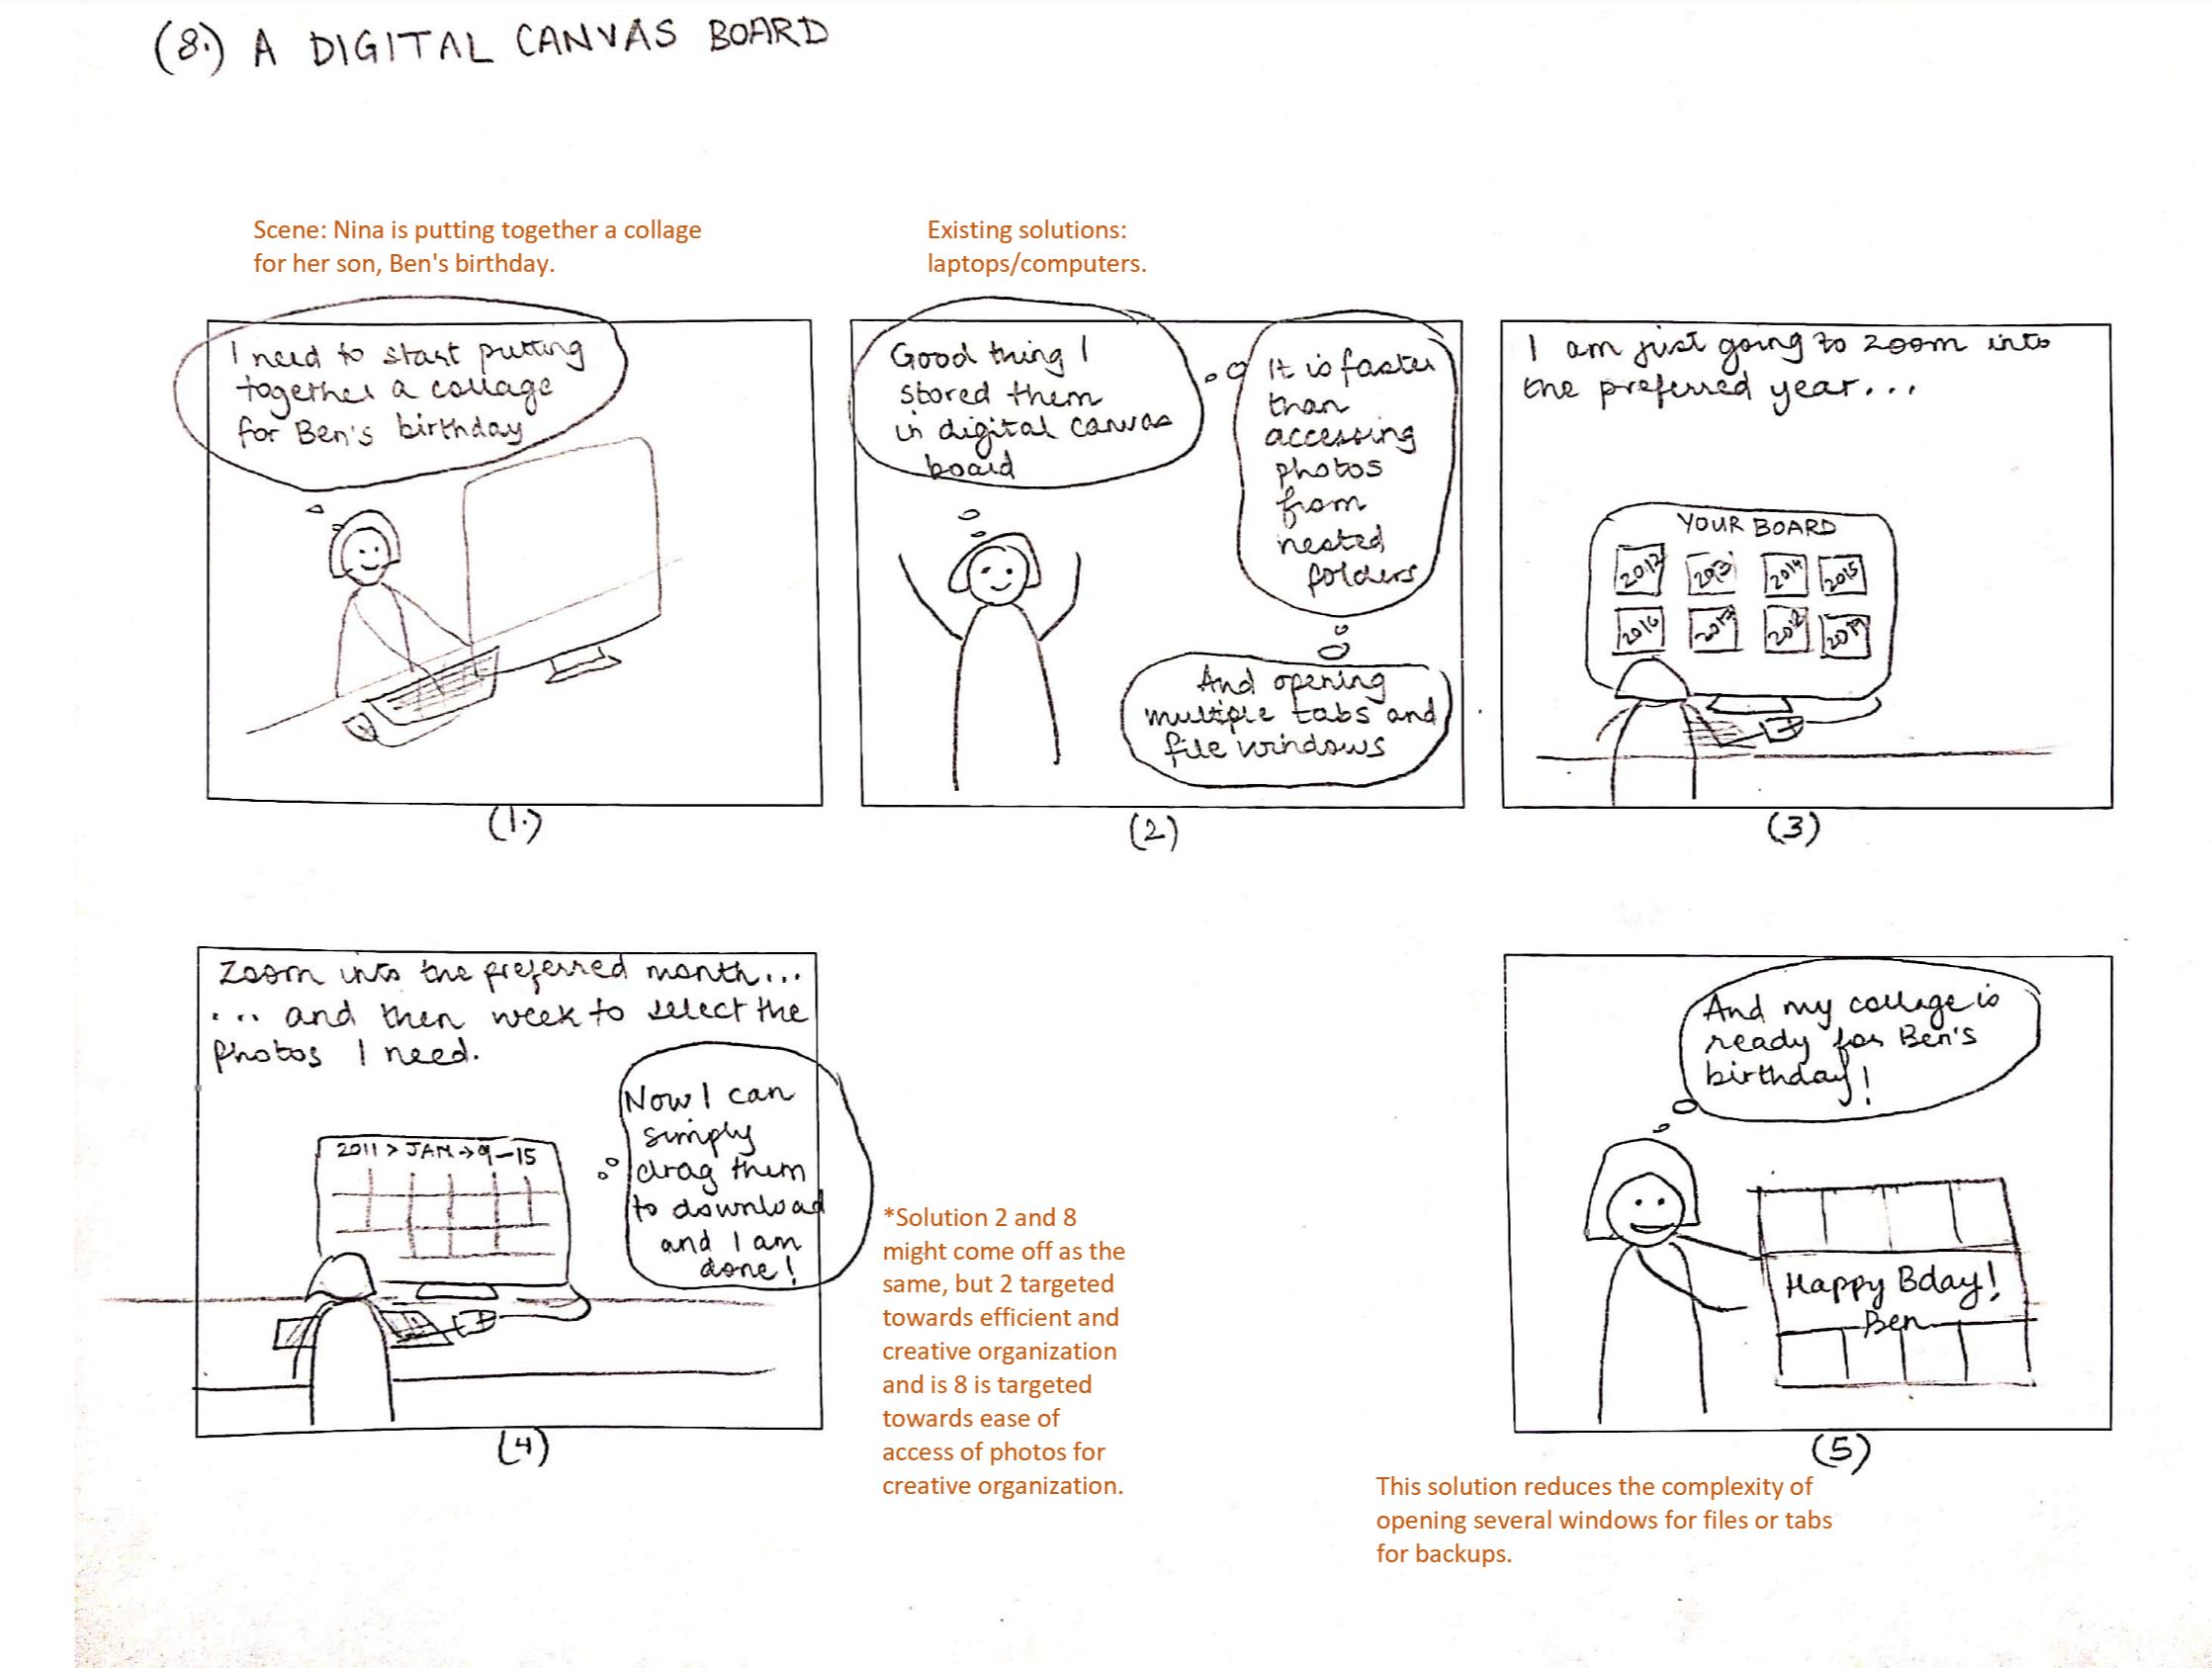 (8.) A DIGITAL CANVAS BOARD
Scene: Nina is putting together a collage
for her son, Ben's birthday.
Existing solutions:
laptops/computers.
I need to start putting
together a collage
for Ben's birthday
(1.)
Good thing I
stored them
in digital canvas
board
It is faster
than
accessing
photos
from
nested
folders
And opening
multiple tabs and
file windows
(2)
I am just going to zoom into
the preferred year...
YOUR BOARD
2012 2013 2014 2015
2016 2017 2018 2019
(3)
Zoom into the preferred month...
... and then week to select the
photos I need.
Now I can
simply
drag them
to download
and I am
done!
2011 > JAN → 9-15
(4)
*Solution 2 and 8
might come off as the
same, but 2 targeted
towards efficient and
creative organization
and is 8 is targeted
towards ease of
access of photos for
creative organization.
And my collage is
ready for Ben's
birthday!
Happy Bday!
Ben
(5)
This solution reduces the complexity of
opening several windows for files or tabs
for backups.